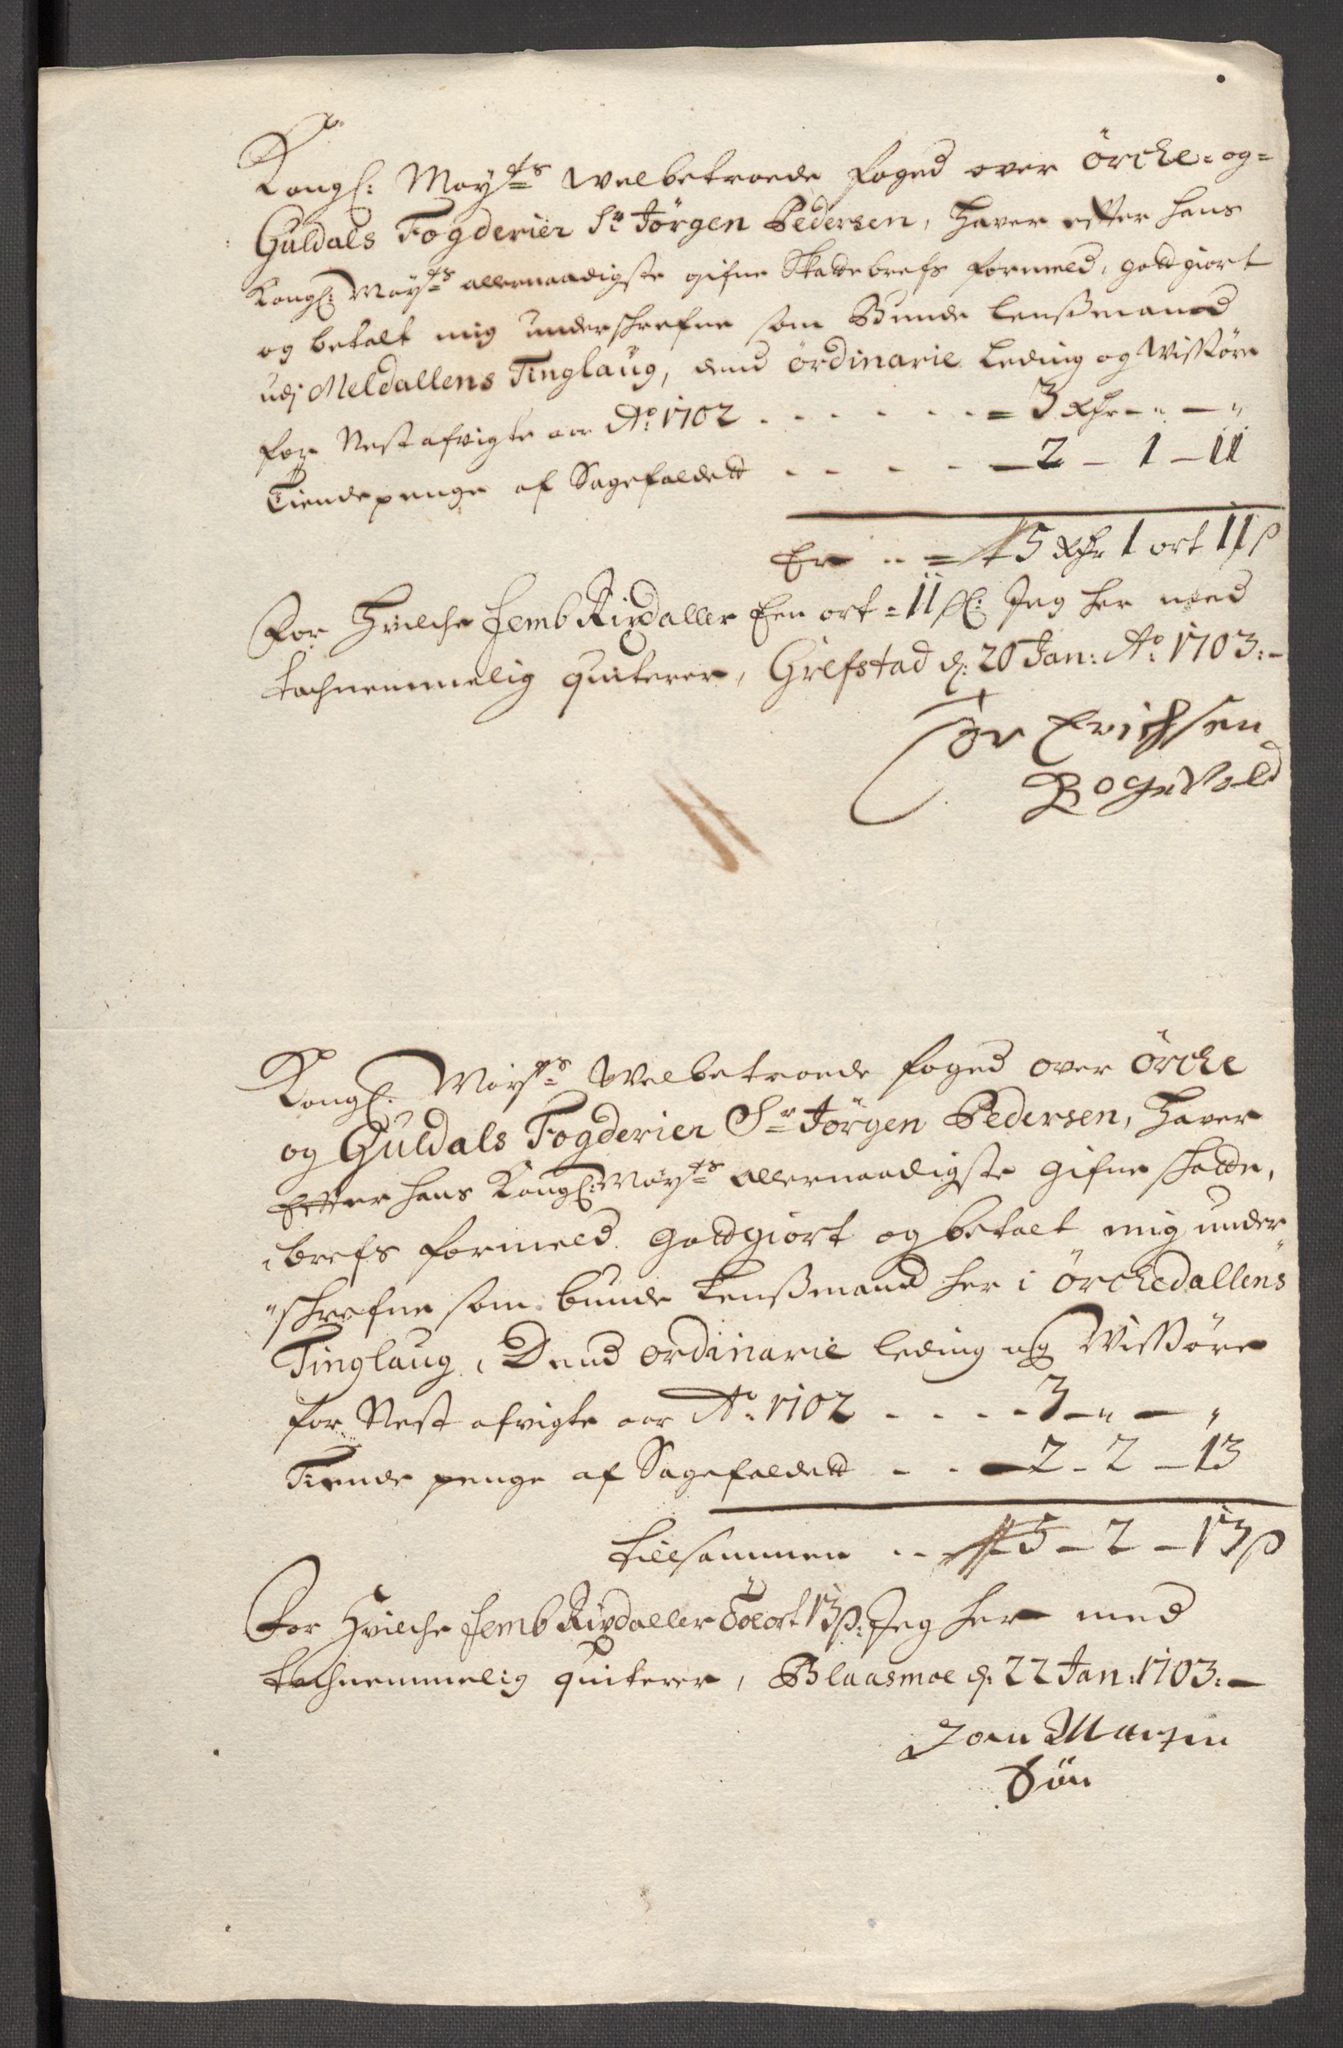 Kongl: Mayts Welbetroede foged over Örcke- og-
Guldals Fogderier Sr Jörgen Pedersen, Haver efter hans
Kongl: Mayts allernaadigste gifne Skattebrefs formeld, godtgiort
og betalt mig underschrefne som Bunde lenßmand
udj Meldallens Tinglaug, dend ördinarie Leding og Wissöre
for Nest afvigte aar Ao: 1702 . . . . . . = 3 Rdr - „ - „
Tiendepenge af Sagefaldett . . . . . 2 - 1 - 11
Er . . = 5 Rdr 1 ort 11 ß
For Hvilche femb Rixdaller Een ort - 11 ß: Jeg her med
tachnemmelig quiterer, Grefstad d: 20 Jan: Ao: 1703:-
Tor Erichsen
Kongl: Mayts Welbetroede foged over Örcke
og Guldals Fogderier Sr Jörgen Pedersen, Haver
Efter hans Kongl: Mayts allernaadigste gifne Skatte,
brefs formeld, godtgiort og betalt mig under
„schrefne som bunde Lenßmand her i Örckedallens
Tinglaug, Dend ordinarie leding og Wissöre
for Nest afvigte aar Ao: 1702 . . . . - 3 - „ - „
Tiende penge af Sagefaldett . . . 2 - 2 - 13
tillsammen . . 5 - 2 - 13 ß
For Hvilche femb Rixdaller Toe ort 13 ß: Jeg her med
tachnemmelig quiterer, Blaasmoe d: 22 Jan: 1703:-
Sön